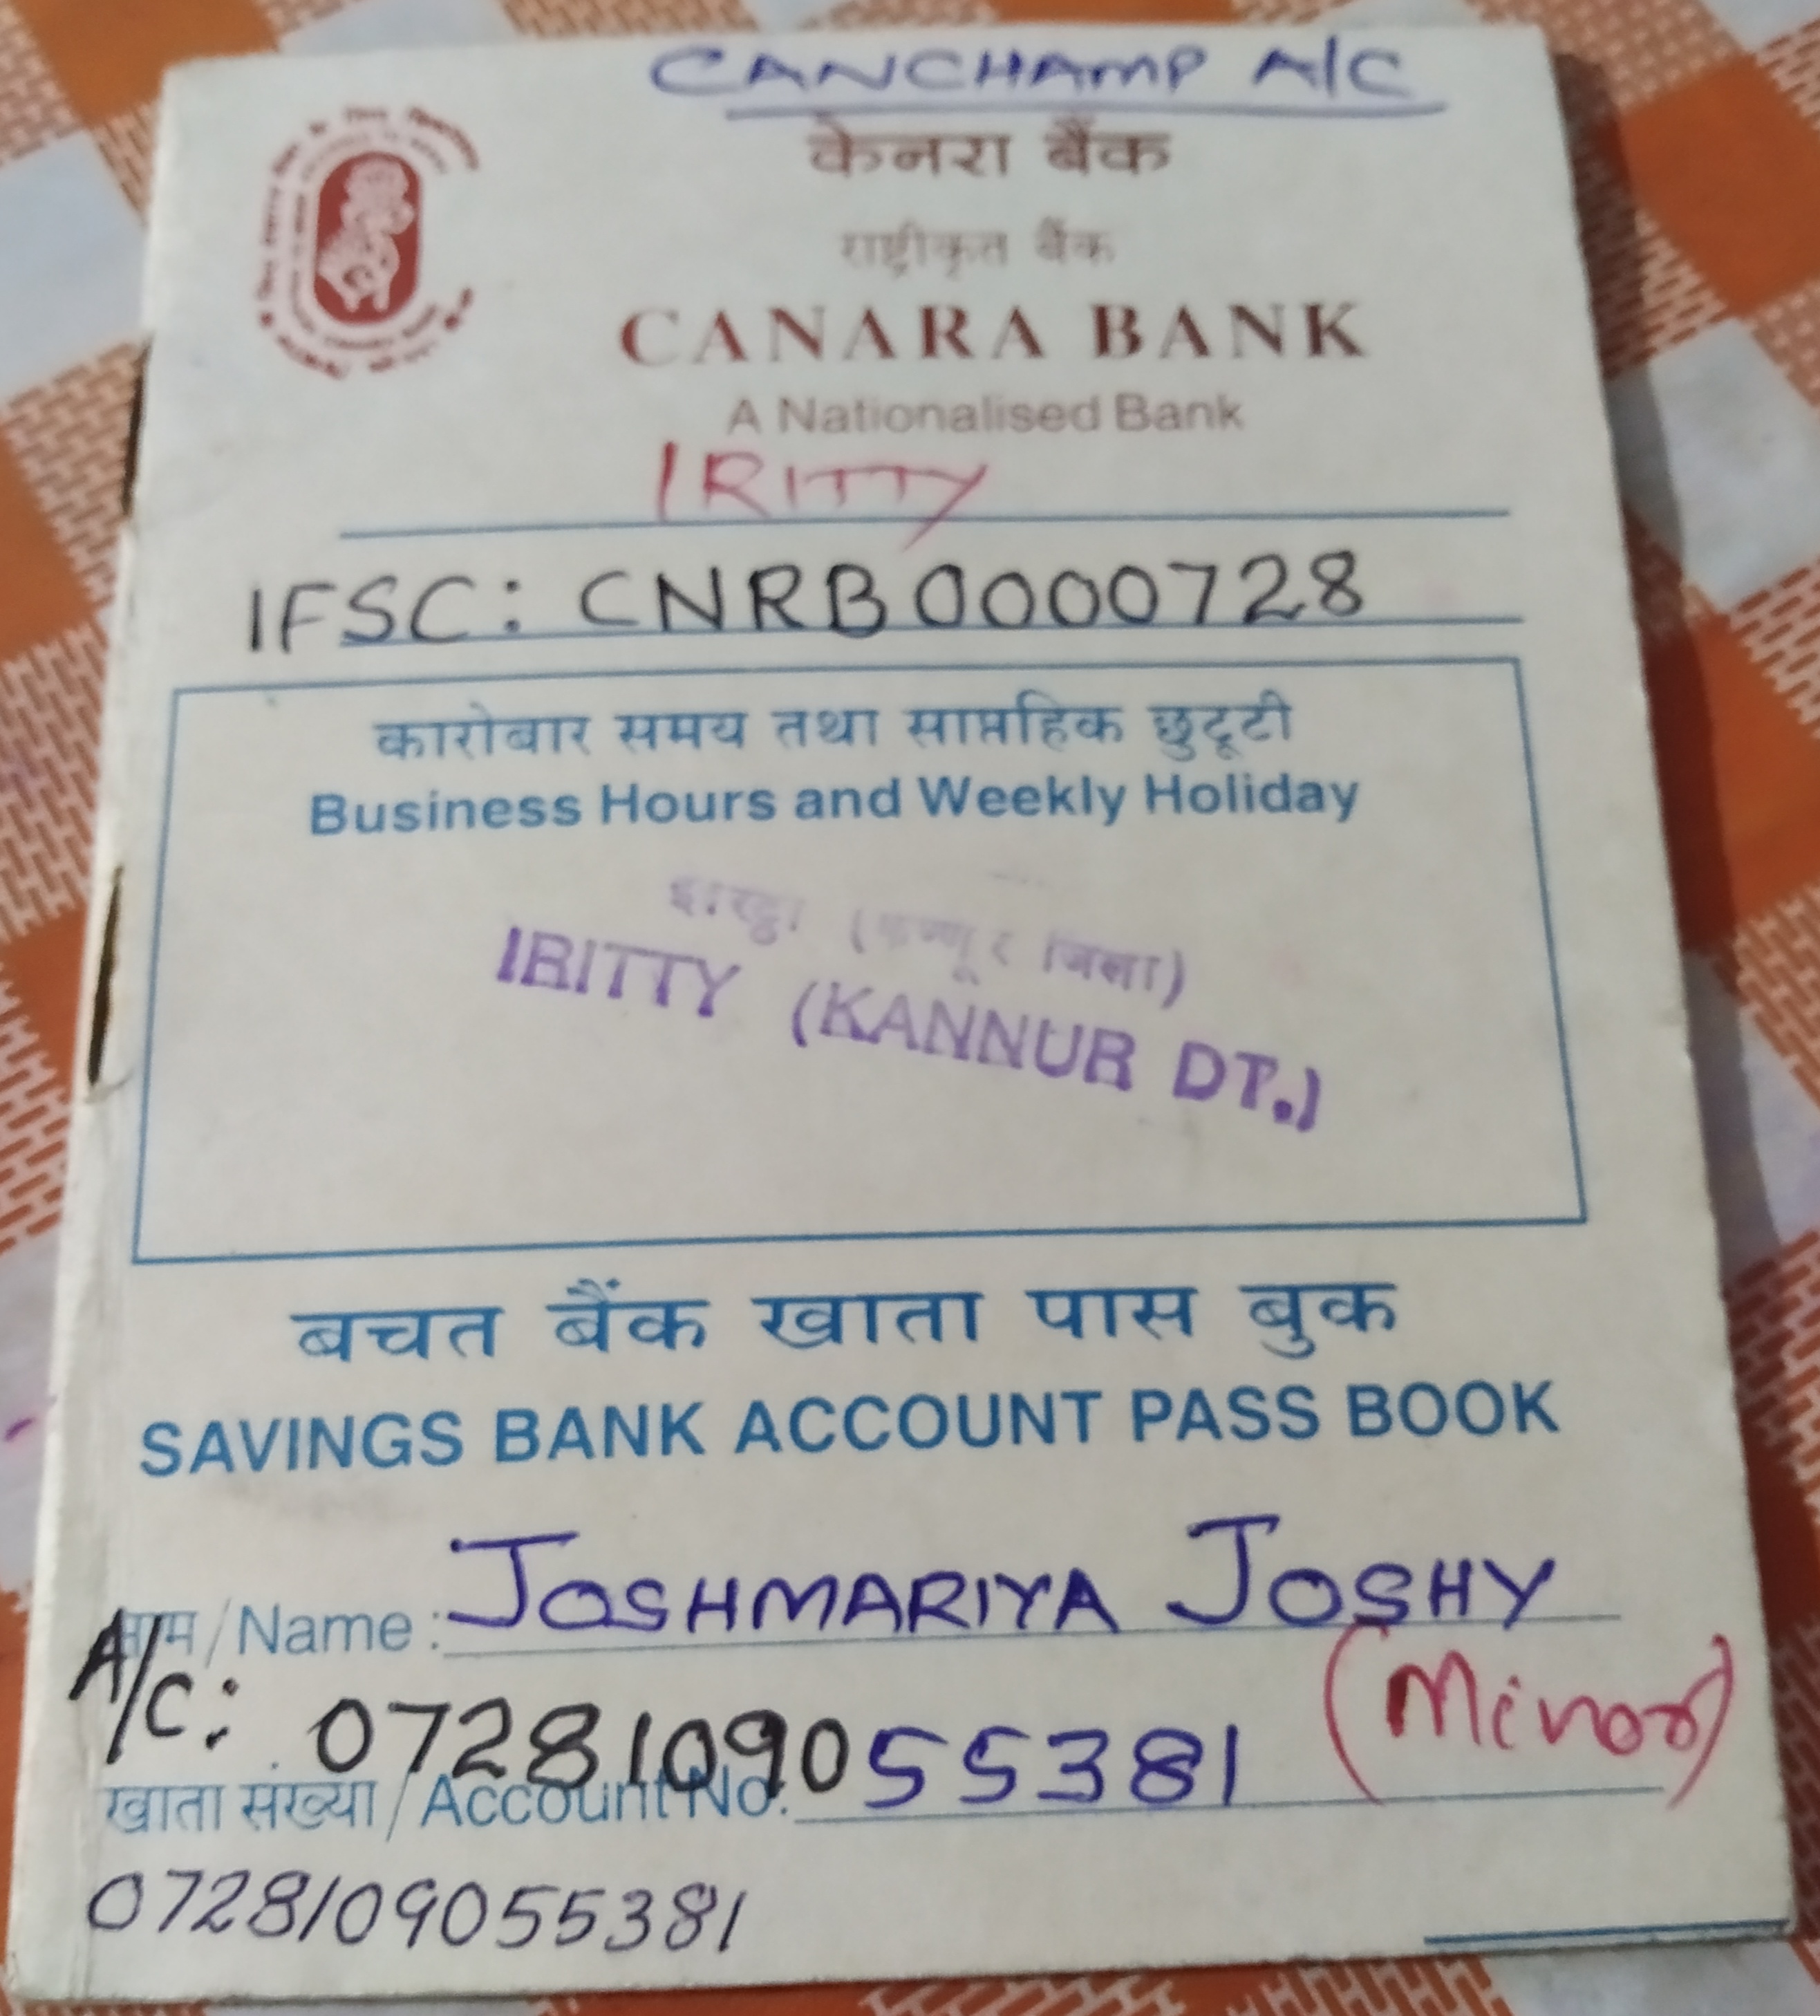 CANCHAMP A/C
केनरा बैंक
राष्ट्रीकृत बैंक
CANARA BANK
A Nationalised Bank
IRITTY
IFSC: CNRB0000728
कारोबार समय तथा साप्तहिक छुट्टी
Business Hours and Weekly Holiday
जिला)
IRITTY (KANNUR DT.)
बचत बैंक खाता पास बुक
SAVINGS BANK ACCOUNT PASS BOOK
नाम/Name: JOSHMARIYA JOSHY
(Minor)
A/C: 0728109055381
खाता संख्या/Account No.
0728109055381